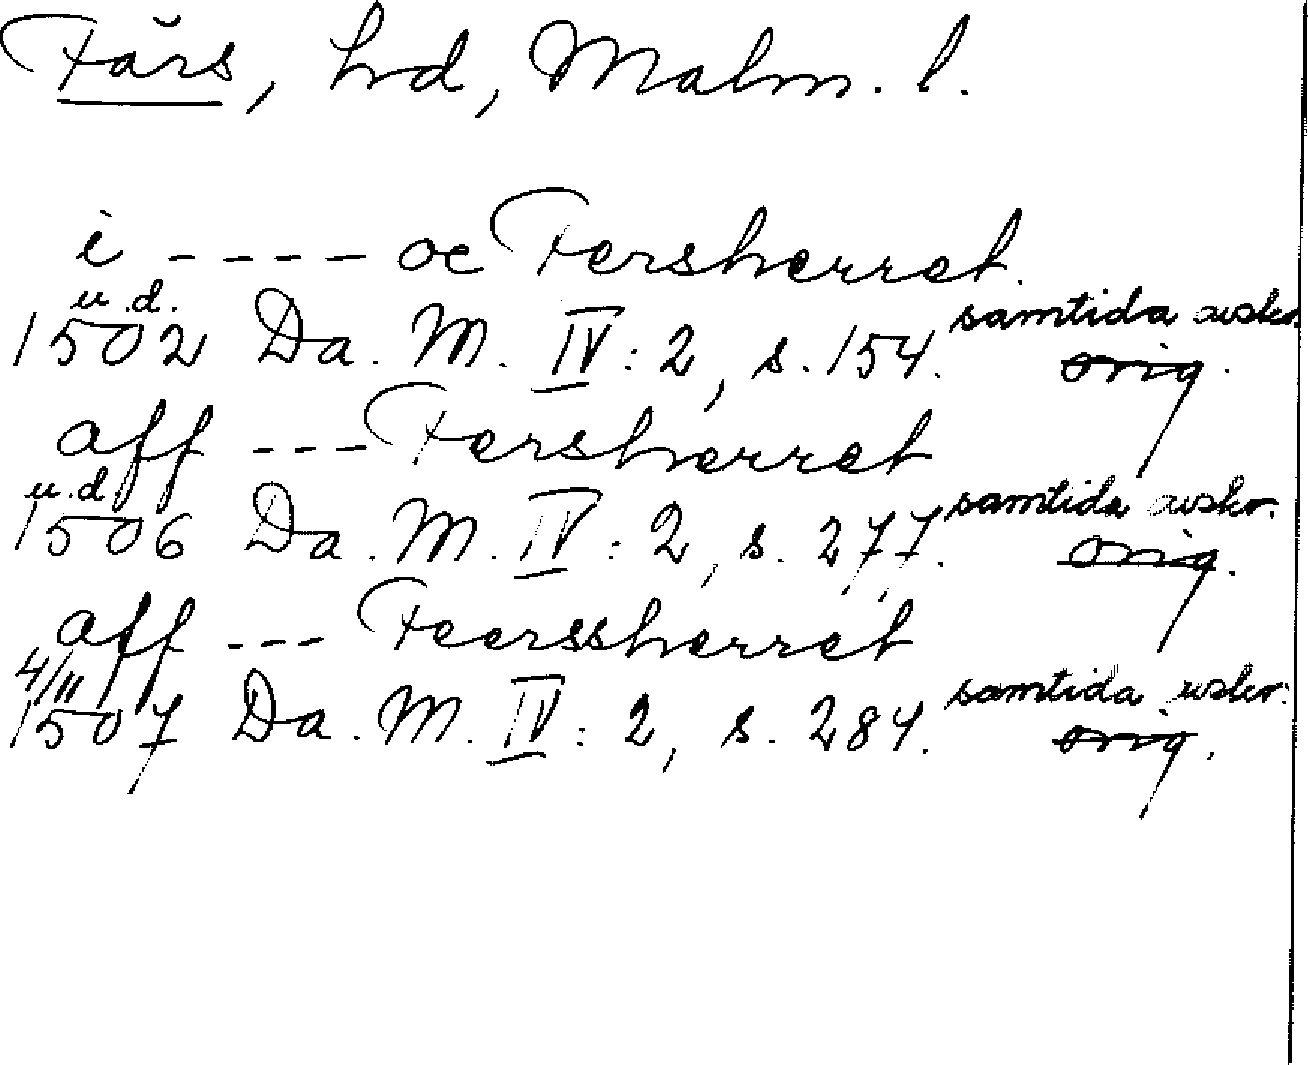 Färs, hd, Malm. l.
i ---- oc Fersherret.
u.d.
1502 Da. M. IV: 2, s. 154. samtida avskr.
orig.
aff --- Fersherret
u.d.
1506 Da. M. IV: 2, s. 277. samtida avskr.
orig.
aff --- Feerssherret
4/11
1507 Da. M. IV: 2, s. 284. samtida avskr.
orig.